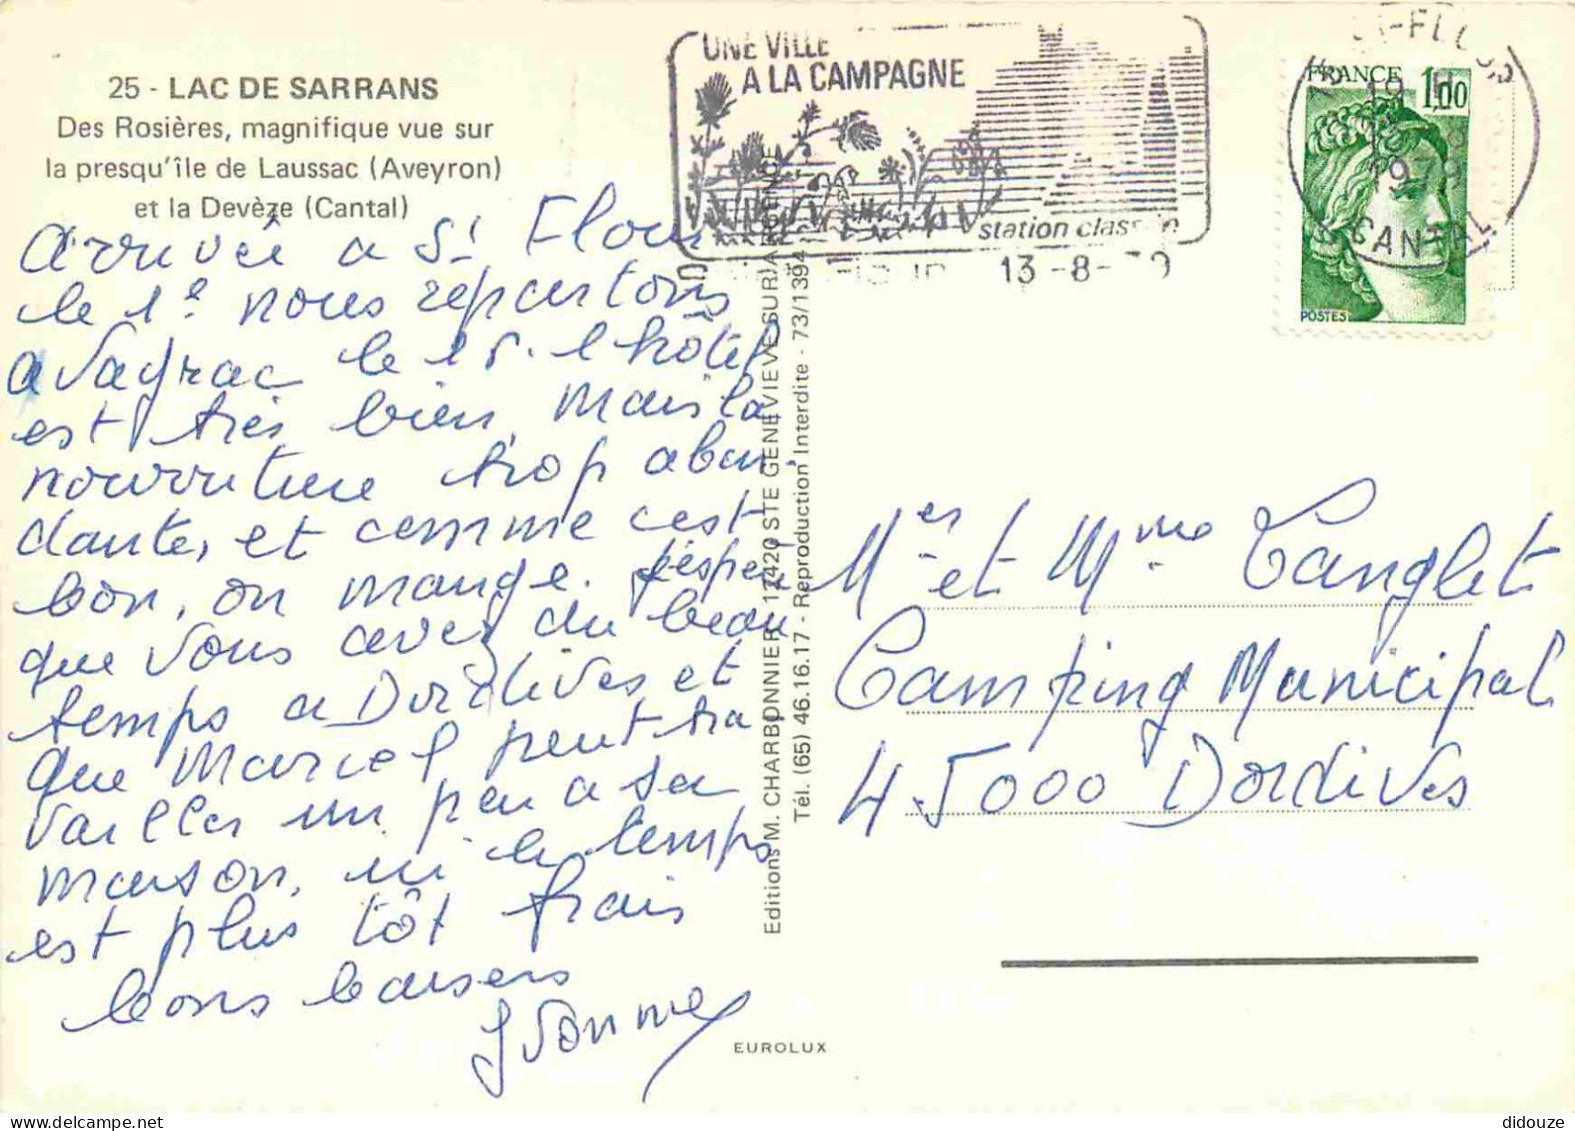 25 - LAC DE SARRANS
Des Rosières, magnifique vue sur
la presqu'île de Laussac (Aveyron)
et la Devèze (Cantal)
arrivée a St Flour
le 1e nous repartons
a Vagrac le 15. l hôtel
est très bien, mais la
nourriture trop abon-
dante, et comme c'est
bon, on mange. j'espère
que vous avez du beau
temps a Dordives et
que Marcel peut tra
vailler un peu a sa
maison, ici le temps
est plus tôt frais
bons baisers
Yvonne
UNE VILLE
A LA CAMPAGNE
station classée
13-8-79
FRANCE 1,00
POSTES
1979
CANTAL
Editions M. CHARBONNIER - 12420 STE GENEVIEVE SUR ARGENCE
Tél. (65) 46.16.17 - Reproduction Interdite - 73/1394
Mer et Mme Tanglet
Camping Municipal
45000 Dordives
EUROLUX
didouze